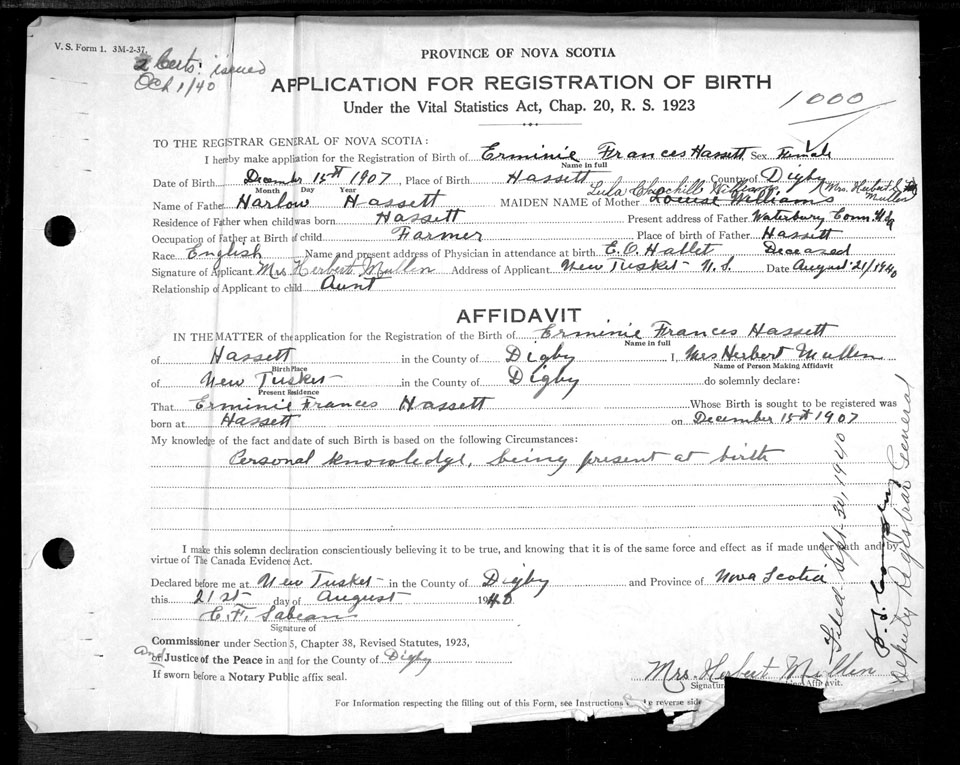 V. S. Form 1. 3M-2-37.
2 Certs. issued
Oct 1/40
PROVINCE OF NOVA SCOTIA
APPLICATION FOR REGISTRATION OF BIRTH
Under the Vital Statistics Act, Chap. 20, R. S. 1923
1000
TO THE REGISTRAR GENERAL OF NOVA SCOTIA:
I hereby make application for the Registration of Birth of Erminie Frances Hassett Sex Female
Name in full
Date of Birth December 15th 1907, Place of Birth Hassett County of Digby
Month Day Year
Lula Churchill Williams / Mrs. Herbert Mullen
Name of Father Harlow Hassett MAIDEN NAME of Mother Louise Williams
Residence of Father when child was born Hassett Present address of Father Waterbury Conn.
Occupation of father at Birth of child Farmer Place of birth of Father Hassett
Race English Name and present address of Physician in attendance at birth E. O. Hallet Deceased
Signature of Applicant Mrs Herbert Mullen Address of Applicant New Tusket N. S. Date August 21/1940
Relationship of Applicant to child Aunt
AFFIDAVIT
IN THE MATTER of the application for the Registration of the Birth of Erminie Frances Hassett
Name in full
of Hassett in the County of Digby I, Mrs Herbert Mullen
Birth Place Name of Person Making Affidavit
of New Tusket in the County of Digby do solemnly declare:
Present Residence
That Erminie Frances Hassett Whose Birth is sought to be registered was
born at Hassett on December 15th 1907
My knowledge of the fact and date of such Birth is based on the following Circumstances:
Personal knowledge, being present at birth
I make this solemn declaration conscientiously believing it to be true, and knowing that it is of the same force and effect as if made under oath and by
virtue of The Canada Evidence Act.
Declared before me at New Tusket in the County of Digby and Province of Nova Scotia
this 21st day of August 1940
C. F. Sabean
Signature of
Commissioner under Section 5, Chapter 38, Revised Statutes, 1923,
and
or Justice of the Peace in and for the County of Digby
If sworn before a Notary Public affix seal.
Mrs. Herbert Mullen
Affidavit.
For Information respecting the filling out of this Form, see Instructions reverse side
Filed Sept. 30, 1940
Deputy Registrar General